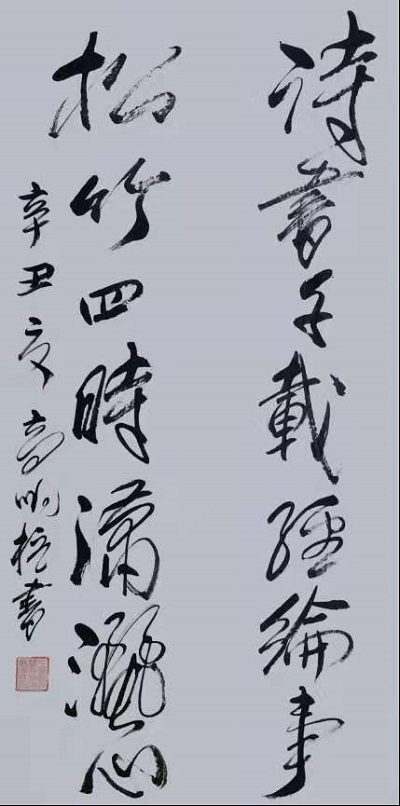 詩書千載經綸事
松竹四時瀟灑心
辛丑夏高明松書